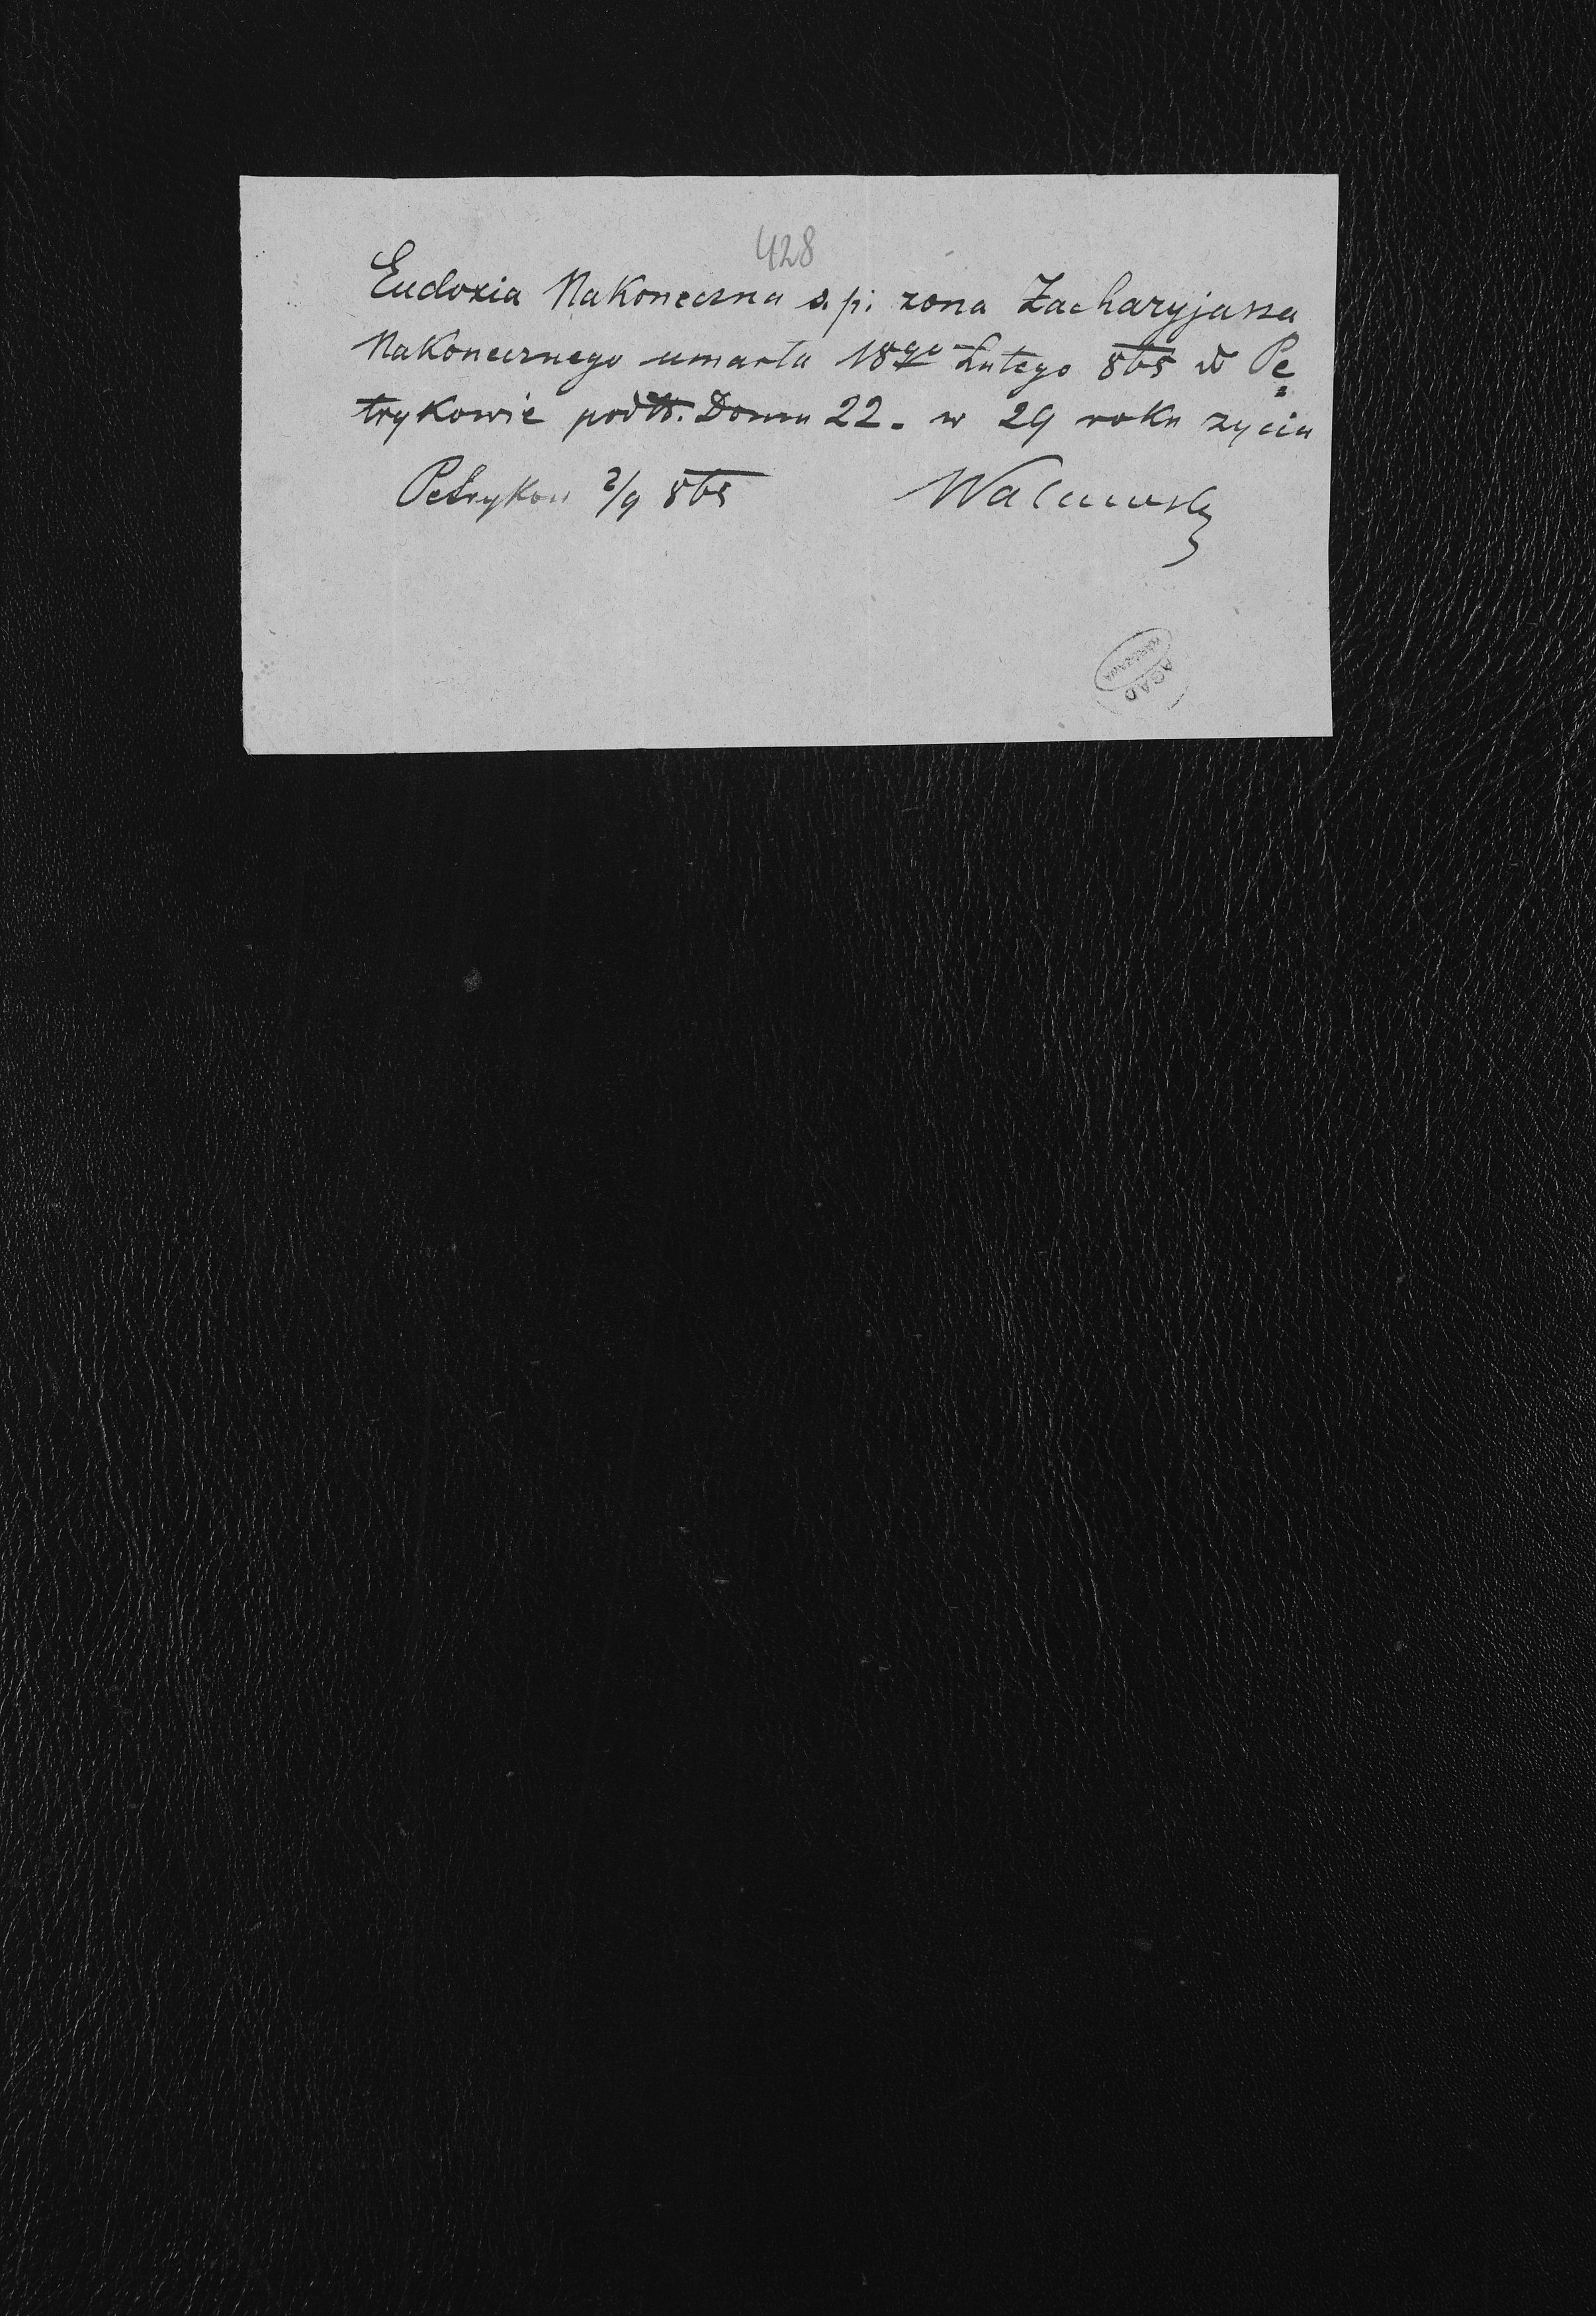 428
Eudoxia Nakoneczna s. p. zona Zacharyjasza
Nakonecznego umarła 18go Lutego 865 w Pe=
trykowie pod N. Domu 22. w 29 roku zycia
Petrykow 2/9 865
AGAD
WARSZAWA